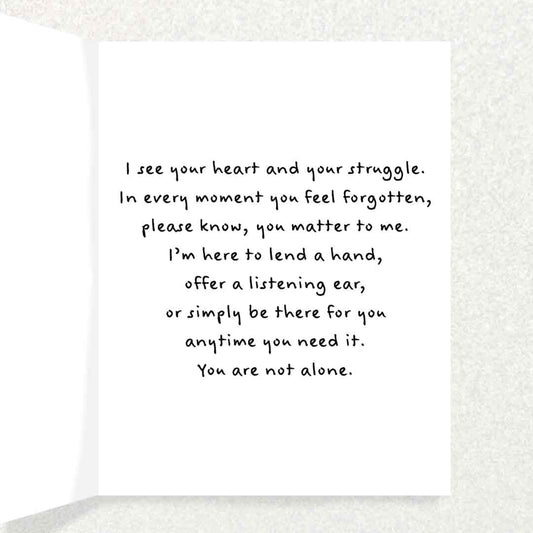 I see your heart and your struggle.
In every moment you feel forgotten,
please know, you matter to me.
I'm here to lend a hand,
offer a listening ear,
or simply be there for you
anytime you need it.
You are not alone.